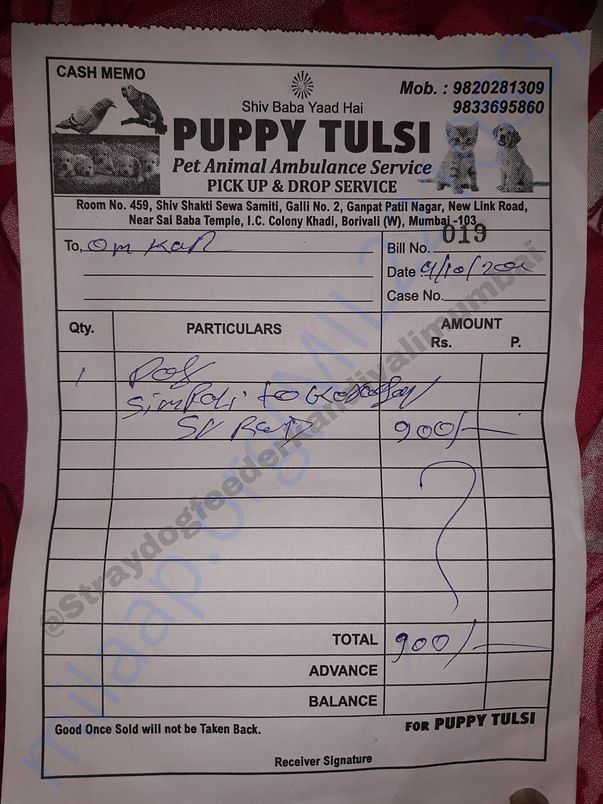 CASH MEMO
Mob. : 9820281309
9833695860
Shiv Baba Yaad Hai
PUPPY TULSI
Pet Animal Ambulance Service
PICK UP & DROP SERVICE
Room No. 459, Shiv Shakti Sewa Samiti, Galli No. 2, Ganpat Patil Nagar, New Link Road,
Near Sai Baba Temple, I.C. Colony Khadi, Borivali (W), Mumbai -103
To, Om Kar
Bill No. 019
Date 9/10/202
Case No.
Qty. PARTICULARS AMOUNT
Rs. P.
1 Dog
Simpoli to
900/-
TOTAL 900/-
ADVANCE
BALANCE
Good Once Sold will not be Taken Back.
FOR PUPPY TULSI
Receiver Signature
@Straydogfeedermansivalimumbai